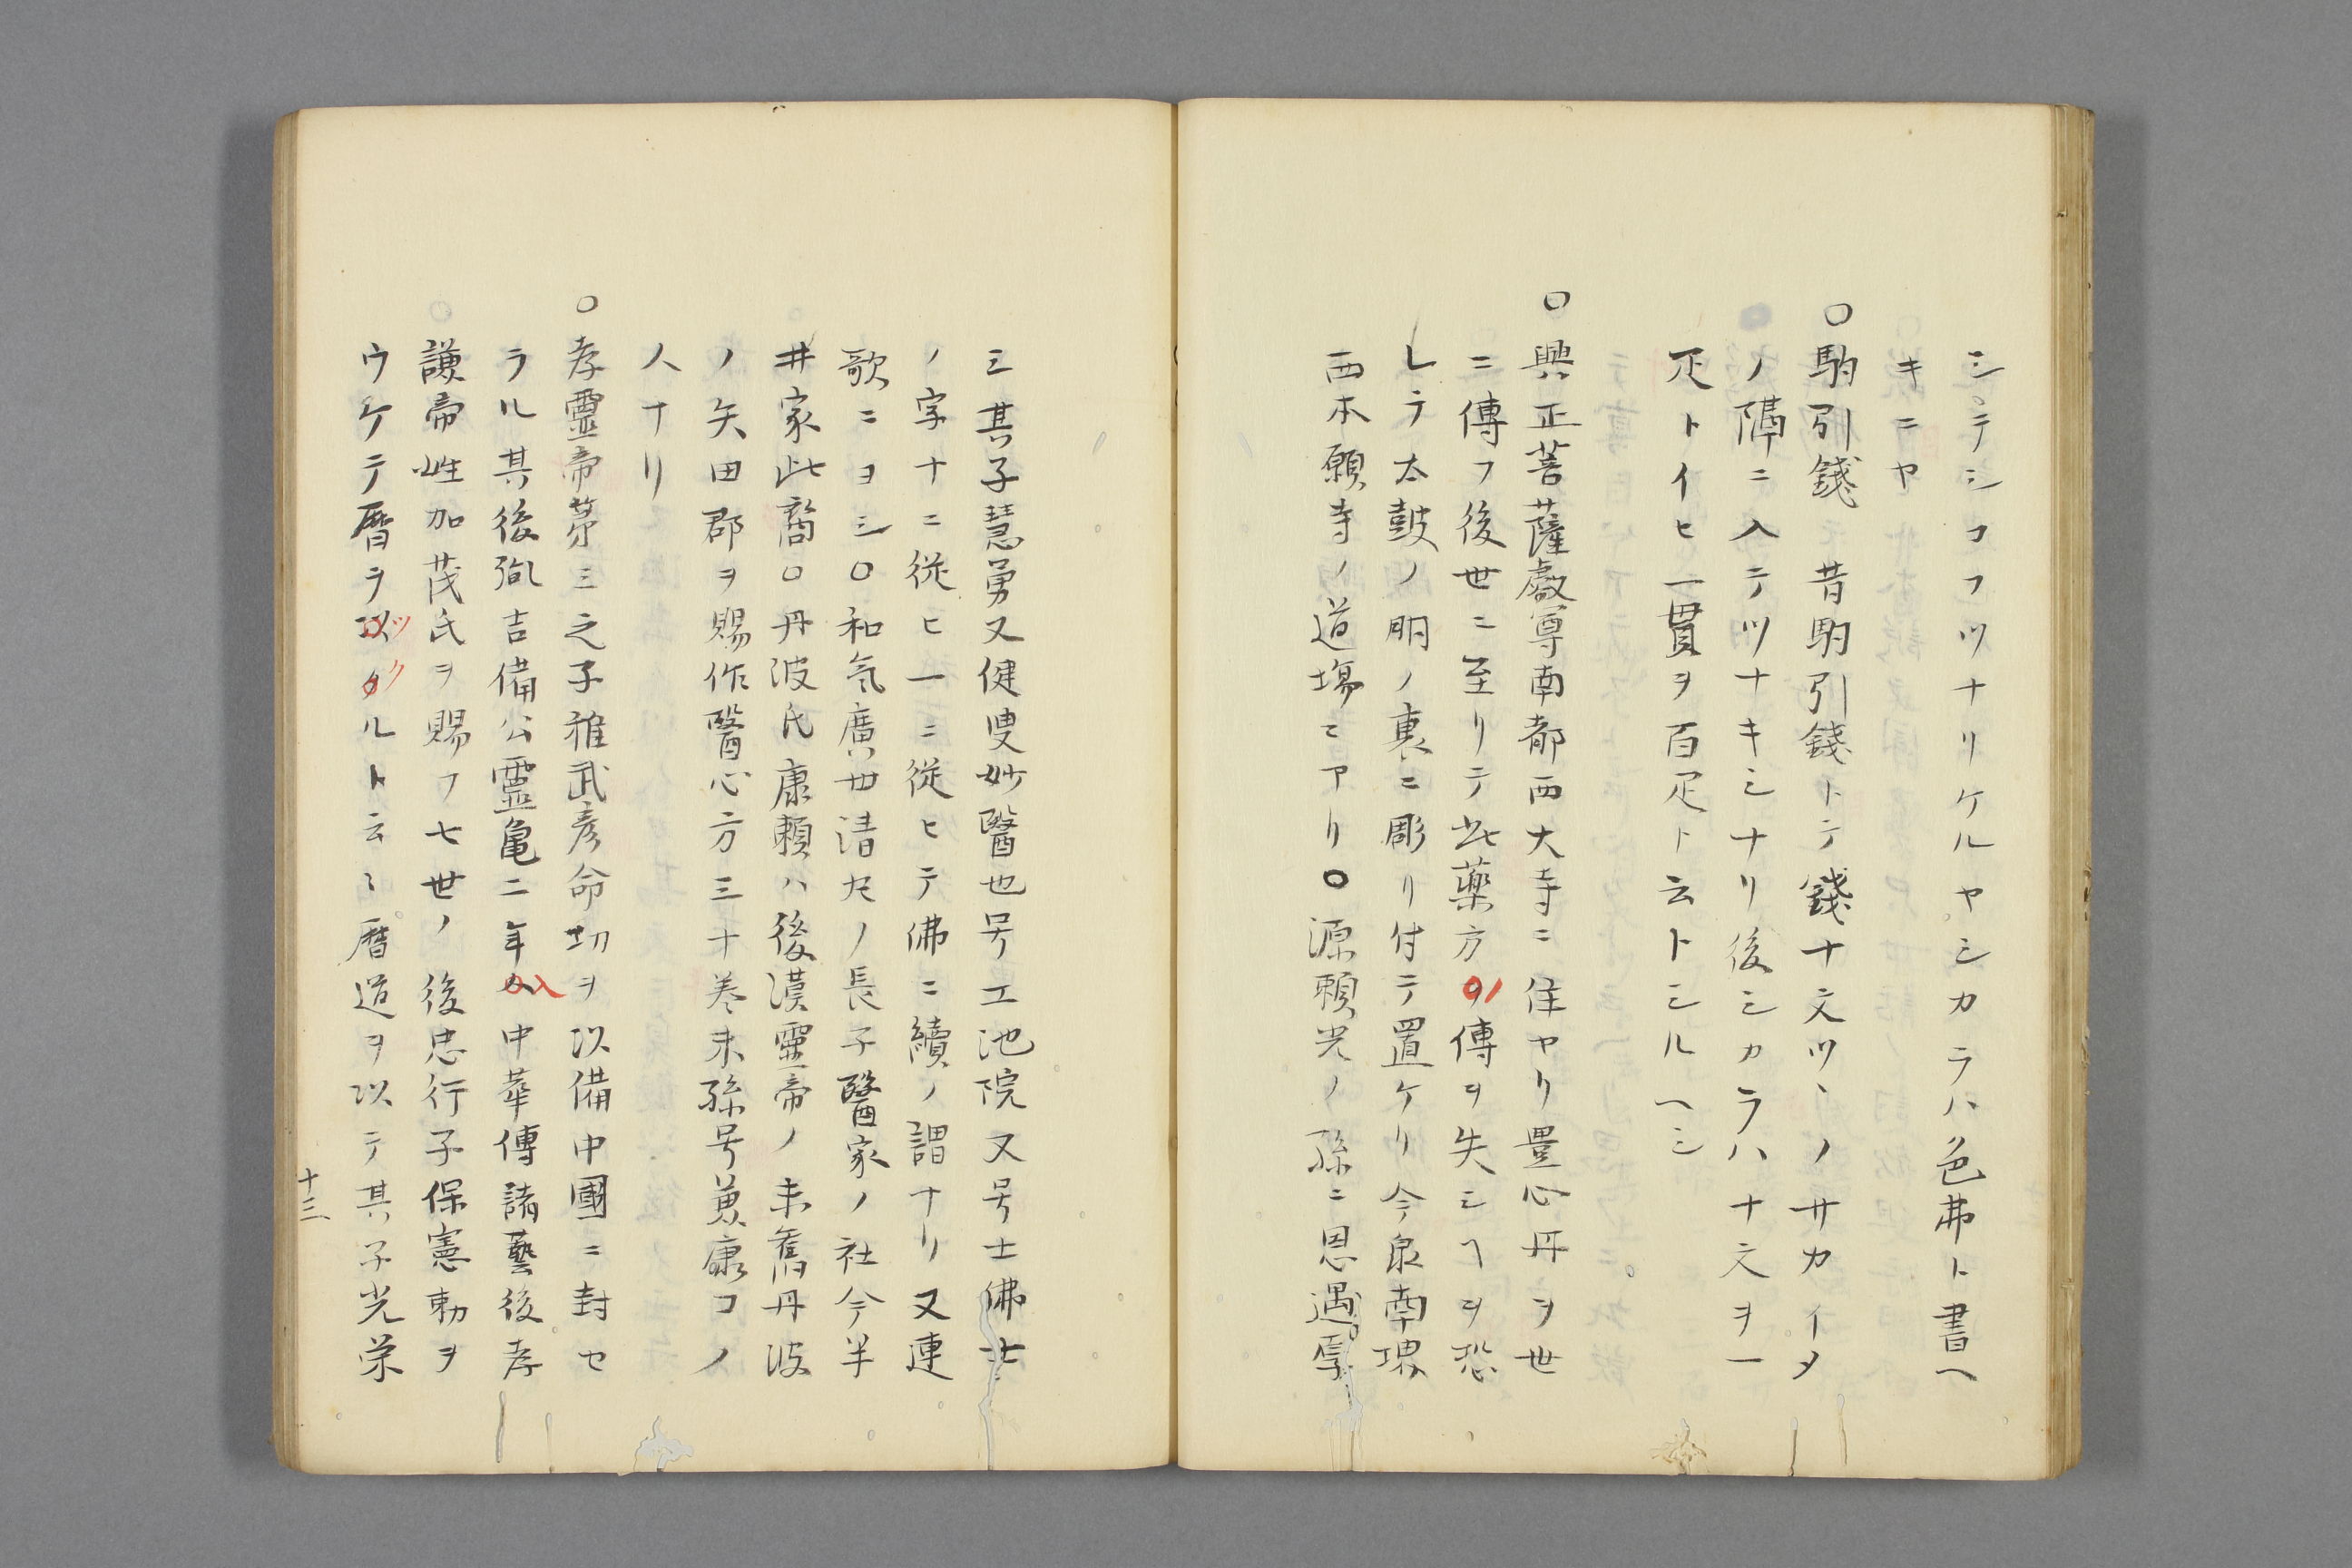 シテシコフツナリケルヤシカラハ色弗ト書ヘ
キニヤ
○駒引錢 昔駒引錢トテ錢十文ツヽノサカイタ
ノ隣ニ入テツナキシナリ後シカラハ十文ヲ一
疋トイヒ一貫ヲ百疋ト云トシルヘシ
○興正菩薩叡尊南都西大寺ニ住ヤリ豊心丹ヲ世
ニ傳フ後世ニ至リテ此藥方ノ傳ヲ失シヿヲ恐
レテ太鼓ノ胴ノ裏ニ彫リ付テ置ケリ今泉南堺
西本願寺ノ道場ニアリ○源頼光ノ孫ニ恩遇厚
シ其子慧勇又健叟妙醫也号工池院又号士佛士
ノ字十ニ從ヒ一ニ從ヒテ佛ニ續ノ謂ナリ又連
歌ニヨシ○和気廣世清丸ノ長子醫家ノ社今半
井家此裔○丹波氏康頼ハ後漢靈帝ノ末舊丹波
ノ矢田郡ヲ賜作醫心方三十巻末孫号兼康コノ
人ナリ
○孝靈帝苐三之子稚武彦命切ヲ以備中國ニ封セ
ラル其後胤吉備公靈亀二年入中華傳諸藝後孝
謙帝姓加茂氏ヲ賜フ七世ノ後忠行子保憲勅ヲ
ウケテ暦ヲツクルト云〻暦道ヲ以テ其子光栄
十三